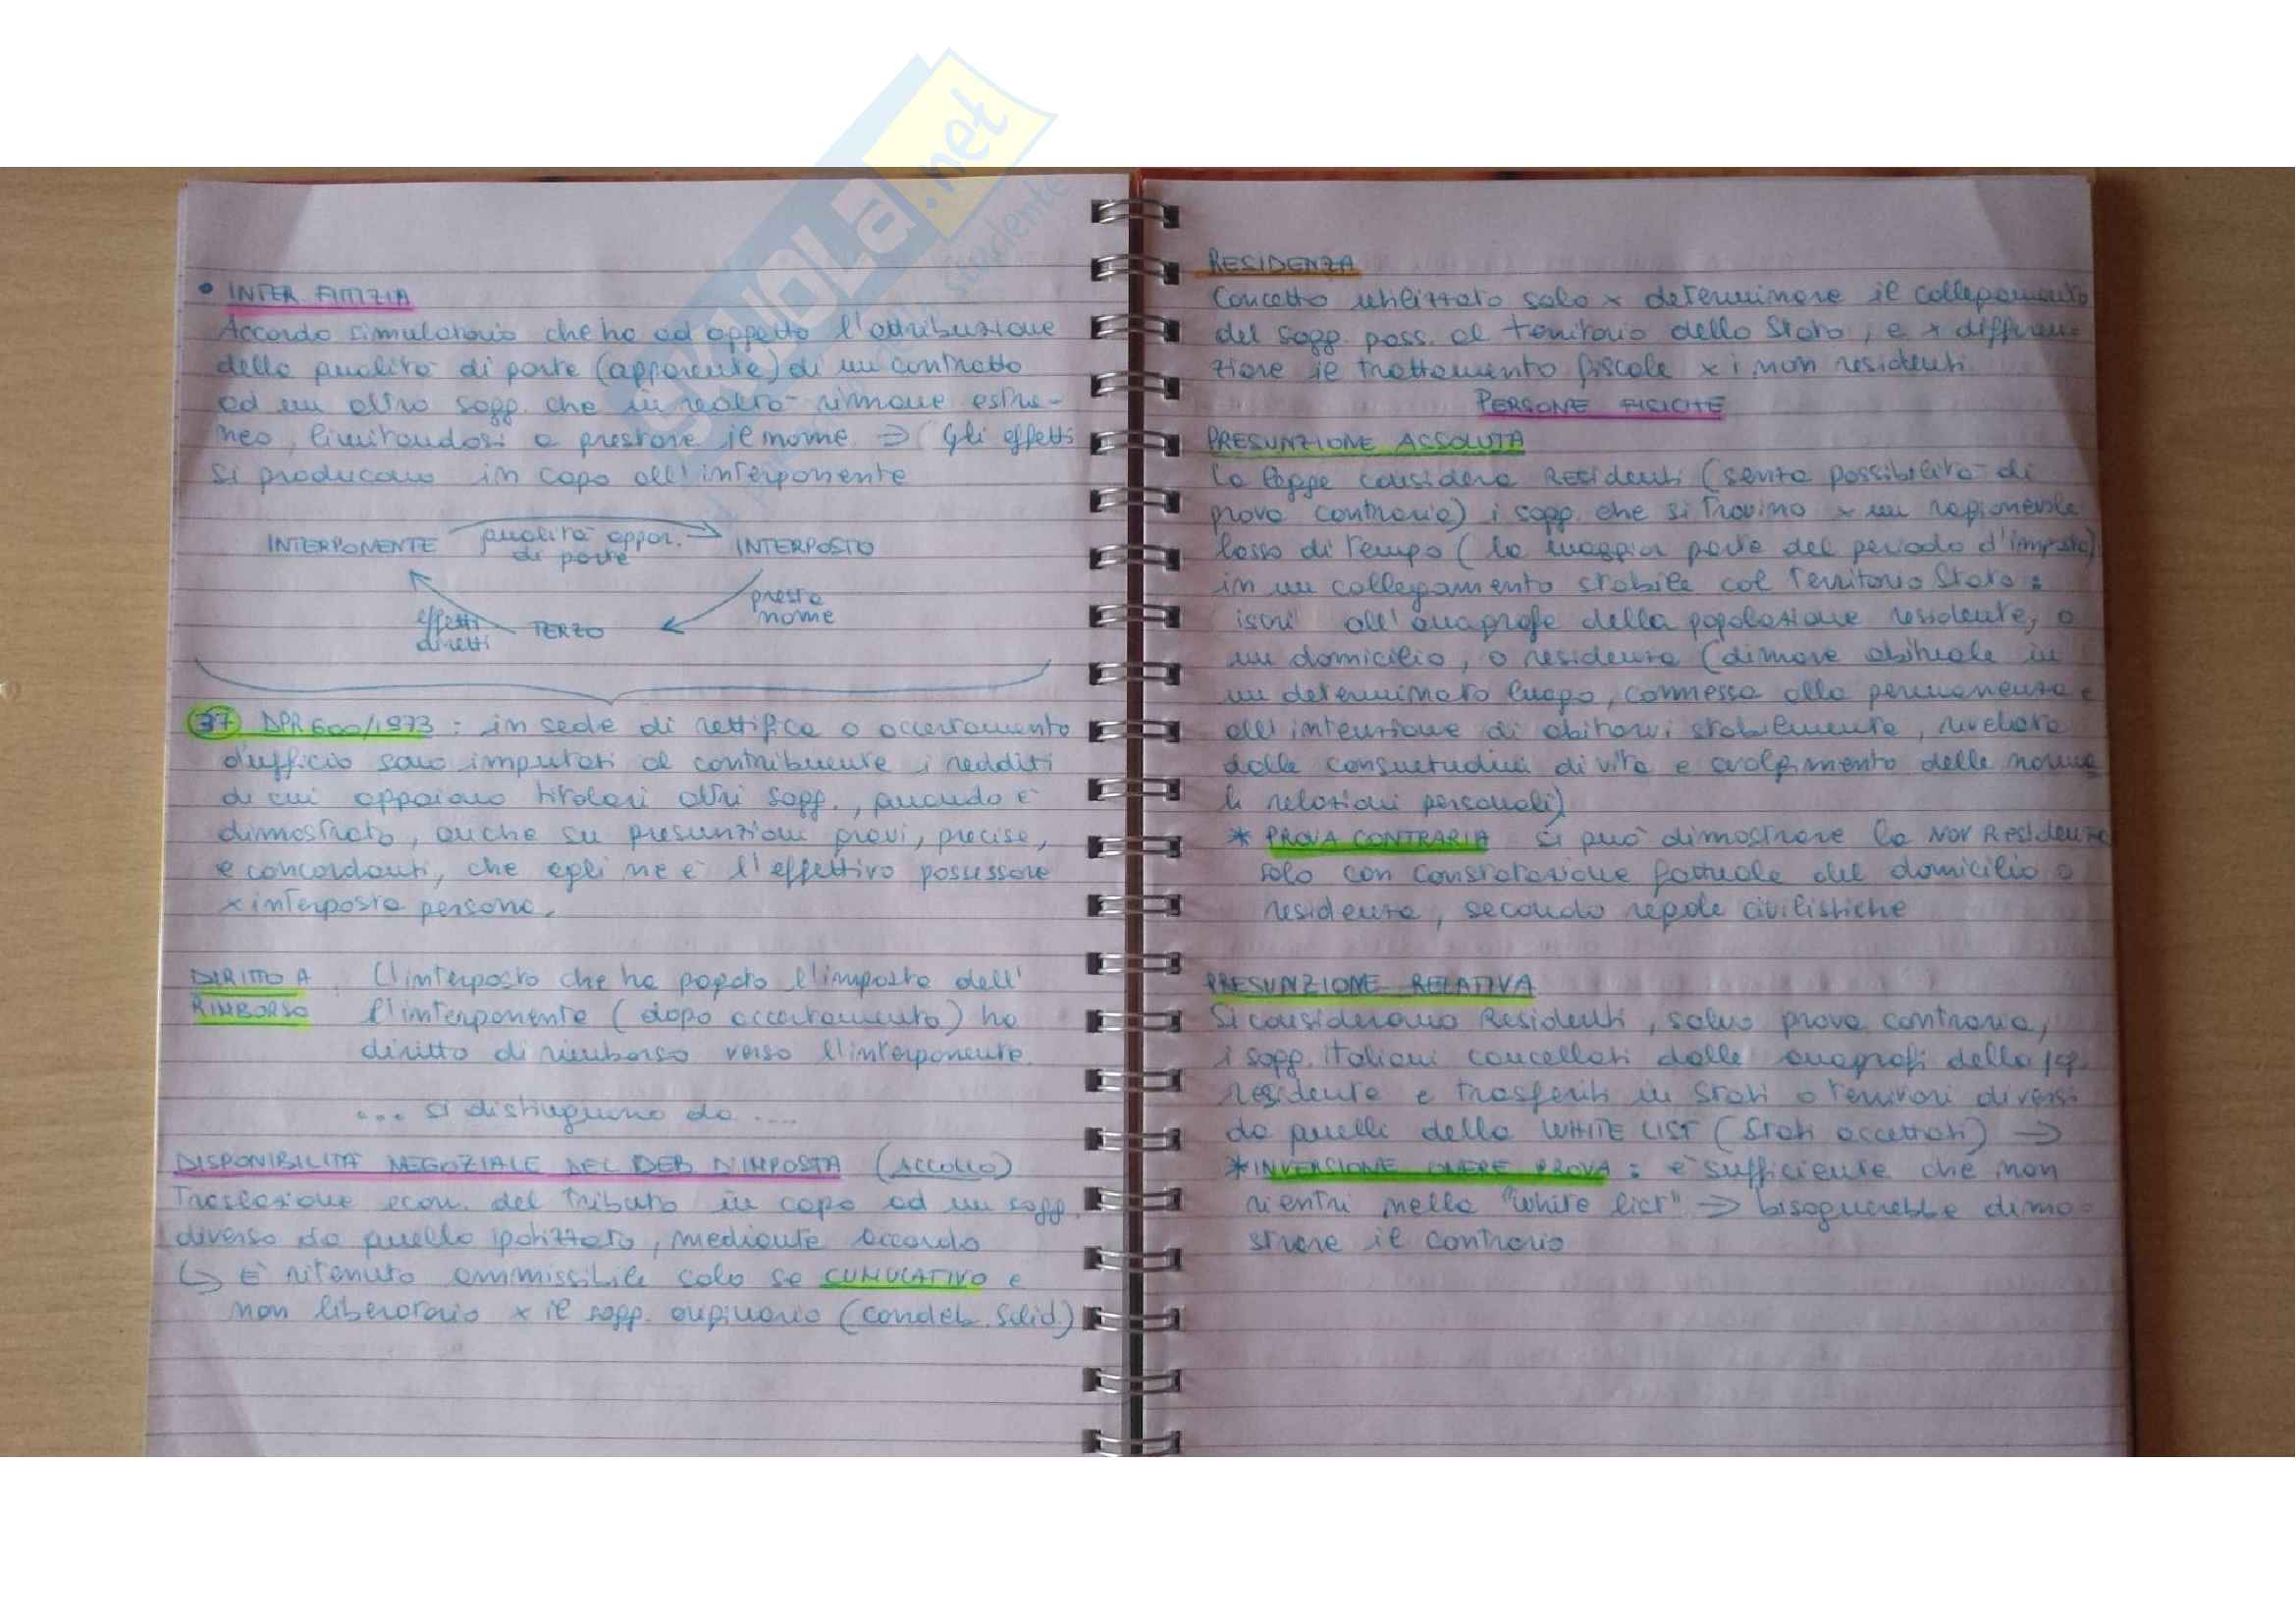 SKUOLA.net
• INTER. FITTIZIA
Accordo simulatorio che ha ad oggetto l'attribuzione
della qualità di parte (apparente) di un contratto
ad un altro sogg. che in realtà rimane estra-
neo, limitandosi a prestare il nome => Gli effetti
si producono in capo all'interponente
INTERPONENTE qualità appar. INTERPOSTO
di parte
presta
nome
effetti TERZO
diretti
37 DPR 600/1973 : in sede di rettifica o accertamento
d'ufficio sono imputati al contribuente i redditi
di cui appaiono titolari altri sogg., quando è
dimostrato, anche su presunzioni gravi, precise,
e concordanti, che egli ne è l'effettivo possessore
x interposta persona.
DIRITTO A L'interposto che ha pagato l'imposta dell'
RIMBORSO l'interponente (dopo accertamento) ha
diritto di rimborso verso l'interponente.
... si distinguono da ....
DISPONIBILITÀ NEGOZIALE DEL DEB D'IMPOSTA (ACCOLLO)
Traslazione econ. del tributo in capo ad un sogg.
diverso da quello ipotizzato, mediante accordo
↳ È ritenuto ammissibile solo se CUMULATIVO e
non liberatorio x il sogg. originario (condeb. Solid.)
RESIDENZA
Concetto utilizzato solo x determinare il collegamento
del sogg. pass. al territorio dello Stato, e x differen-
ziare il trattamento fiscale x i non residenti.
PERSONE FISICHE
PRESUNZIONE ASSOLUTA
La legge considera RESIdenti (senza possibilità di
prova contraria) i sogg. che si trovino x un ragionevole
lasso di tempo (la maggior parte del periodo d'imposta)
in un collegamento stabile col Territorio Stato :
iscri all'anagrafe della popolazione residente, o
un domicilio, o residenza (dimora abituale in
un determinato luogo, connessa alla permanenza e
all'intenzione di abitarvi stabilmente, rivelata
dalle consuetudini di vita e svolgimento delle norma
li relazioni personali)
* PROVA CONTRARIA si può dimostrare la NON Residenza
solo con constatazione fattuale del domicilio o
residenza, secondo regole civilistiche
PRESUNZIONE RELATIVA
Si considerano Residenti, salvo prova contraria,
i sogg. italiani cancellati dalle anagrafi della pop.
residente e trasferiti in Stati o territori diversi
da quelli della WHITE LIST (Stati accettati) →
* INVERSIONE ONERE PROVA : è sufficiente che non
rientri nella "white list" → bisognerebbe dimo-
strare il contrario